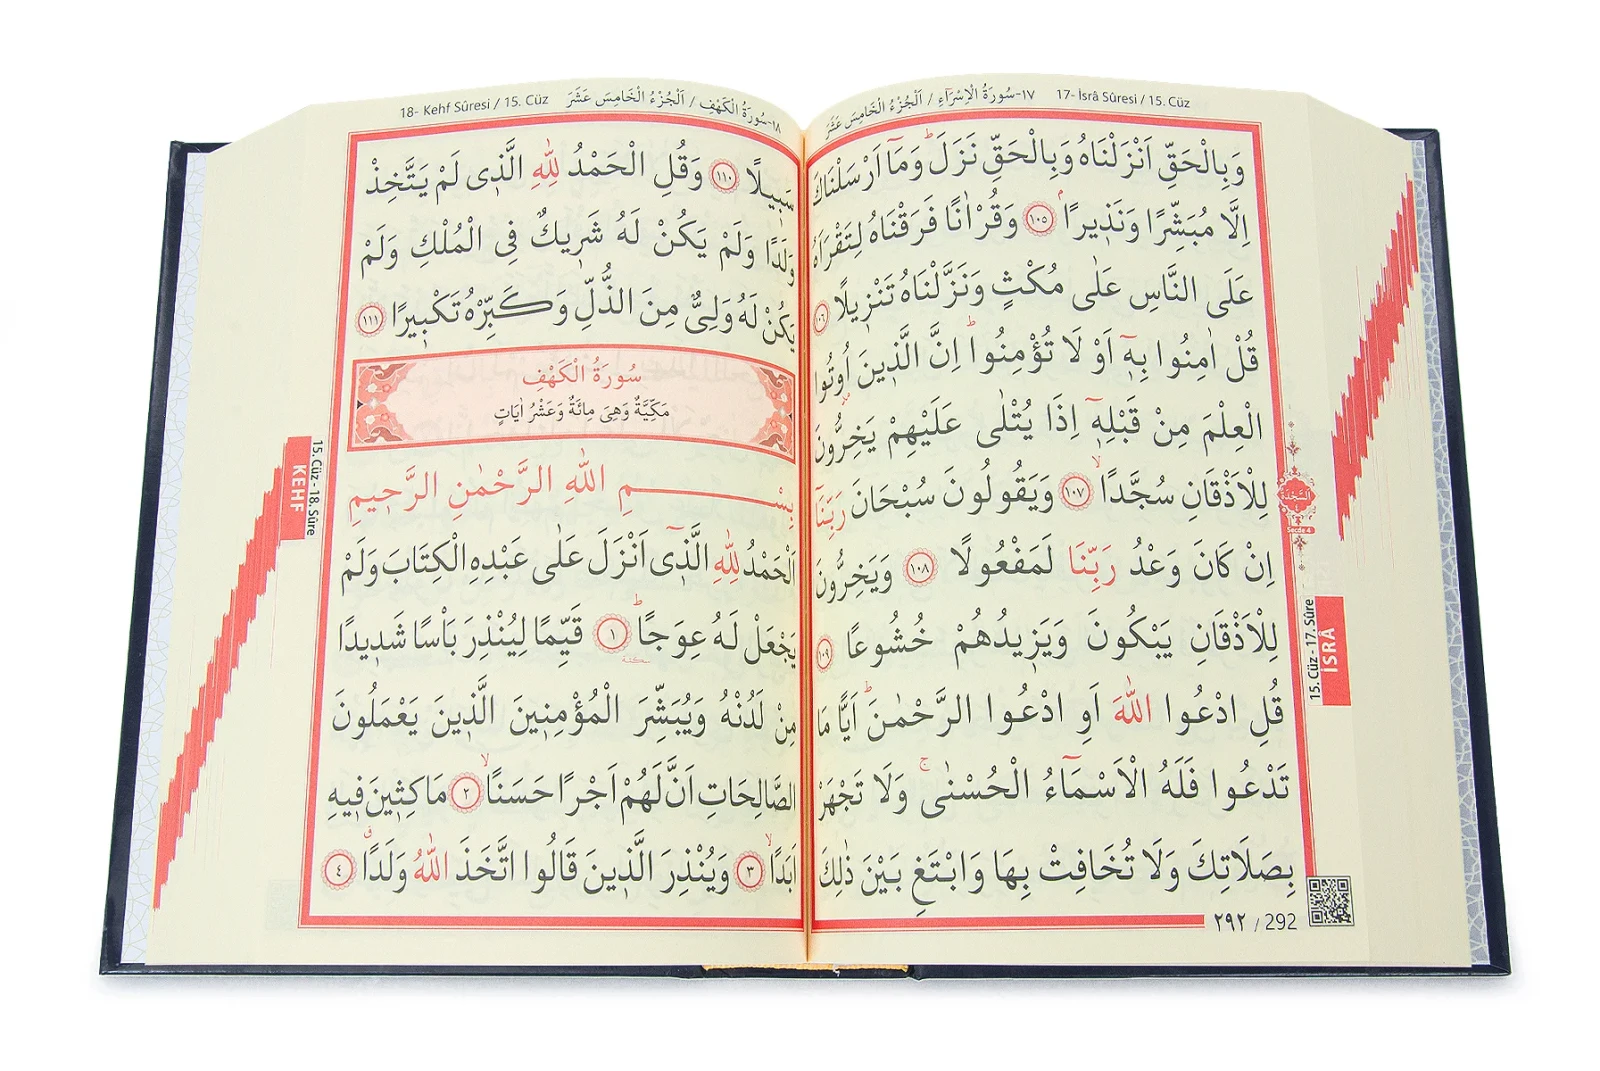 ١٧-سُورَةُ الْاِسْرَاءِ / اَلْجُزْءُ الْخَامِسَ عَشَرَ 17- İsrâ Sûresi / 15. Cüz
وَبِالْحَقِّ اَنْزَلْنَاهُ وَبِالْحَقِّ نَزَلَۜ وَمَٓا اَرْسَلْنَاكَ
اِلَّا مُبَشِّرًا وَنَذ۪يرًاۢ ﴿١٠٥﴾ وَقُرْاٰنًا فَرَقْنَاهُ لِتَقْرَاَهُ
عَلَى النَّاسِ عَلٰى مُكْثٍ وَنَزَّلْنَاهُ تَنْز۪يلًا ﴿١٠٦﴾
قُلْ اٰمِنُوا بِه۪ٓ اَوْ لَا تُؤْمِنُواۜ اِنَّ الَّذ۪ينَ اُو۫تُوا
الْعِلْمَ مِنْ قَبْلِه۪ٓ اِذَا يُتْلٰى عَلَيْهِمْ يَخِرُّونَ
لِلْاَذْقَانِ سُجَّدًاۙ ﴿١٠٧﴾ وَيَقُولُونَ سُبْحَانَ رَبِّنَٓا
اِنْ كَانَ وَعْدُ رَبِّنَا لَمَفْعُولًا ﴿١٠٨﴾ وَيَخِرُّونَ
لِلْاَذْقَانِ يَبْكُونَ وَيَز۪يدُهُمْ خُشُوعًا ﴿١٠٩﴾
قُلِ ادْعُوا اللّٰهَ اَوِ ادْعُوا الرَّحْمٰنَۜ اَيًّا مَا
تَدْعُوا فَلَهُ الْاَسْمَٓاءُ الْحُسْنٰىۚ وَلَا تَجْهَرْ
بِصَلَاتِكَ وَلَا تُخَافِتْ بِهَا وَابْتَغِ بَيْنَ ذٰلِكَ
٢٩٢ / 292
السَّجْدَة
Secde 4
15. Cüz - 17. Sûre
İSRÂ
18- Kehf Sûresi / 15. Cüz ١٨-سُورَةُ الْكَهْفِ / اَلْجُزْءُ الْخَامِسَ عَشَرَ
سَب۪يلًا ﴿١١٠﴾ وَقُلِ الْحَمْدُ لِلّٰهِ الَّذ۪ى لَمْ يَتَّخِذْ
وَلَدًا وَلَمْ يَكُنْ لَهُ شَر۪يكٌ فِى الْمُلْكِ وَلَمْ
يَكُنْ لَهُ وَلِىٌّ مِنَ الذُّلِّ وَكَبِّرْهُ تَكْب۪يرًا ﴿١١١﴾
سُورَةُ الْكَهْفِ
مَكِّيَّةٌ وَهِىَ مِائَةٌ وَعَشْرُ اٰيَاتٍ
بِسْمِ اللّٰهِ الرَّحْمٰنِ الرَّح۪يمِ
اَلْحَمْدُ لِلّٰهِ الَّذ۪ٓى اَنْزَلَ عَلٰى عَبْدِهِ الْكِتَابَ وَلَمْ
يَجْعَلْ لَهُ عِوَجًاۜ ﴿١﴾ سكته قَيِّمًا لِيُنْذِرَ بَاْسًا شَد۪يدًا
مِنْ لَدُنْهُ وَيُبَشِّرَ الْمُؤْمِن۪ينَ الَّذ۪ينَ يَعْمَلُونَ
الصَّالِحَاتِ اَنَّ لَهُمْ اَجْرًا حَسَنًاۙ ﴿٢﴾ مَاكِث۪ينَ ف۪يهِ
اَبَدًاۙ ﴿٣﴾ وَيُنْذِرَ الَّذ۪ينَ قَالُوا اتَّخَذَ اللّٰهُ وَلَدًاۗ ﴿٤﴾
15. Cüz - 18. Sûre
KEHF